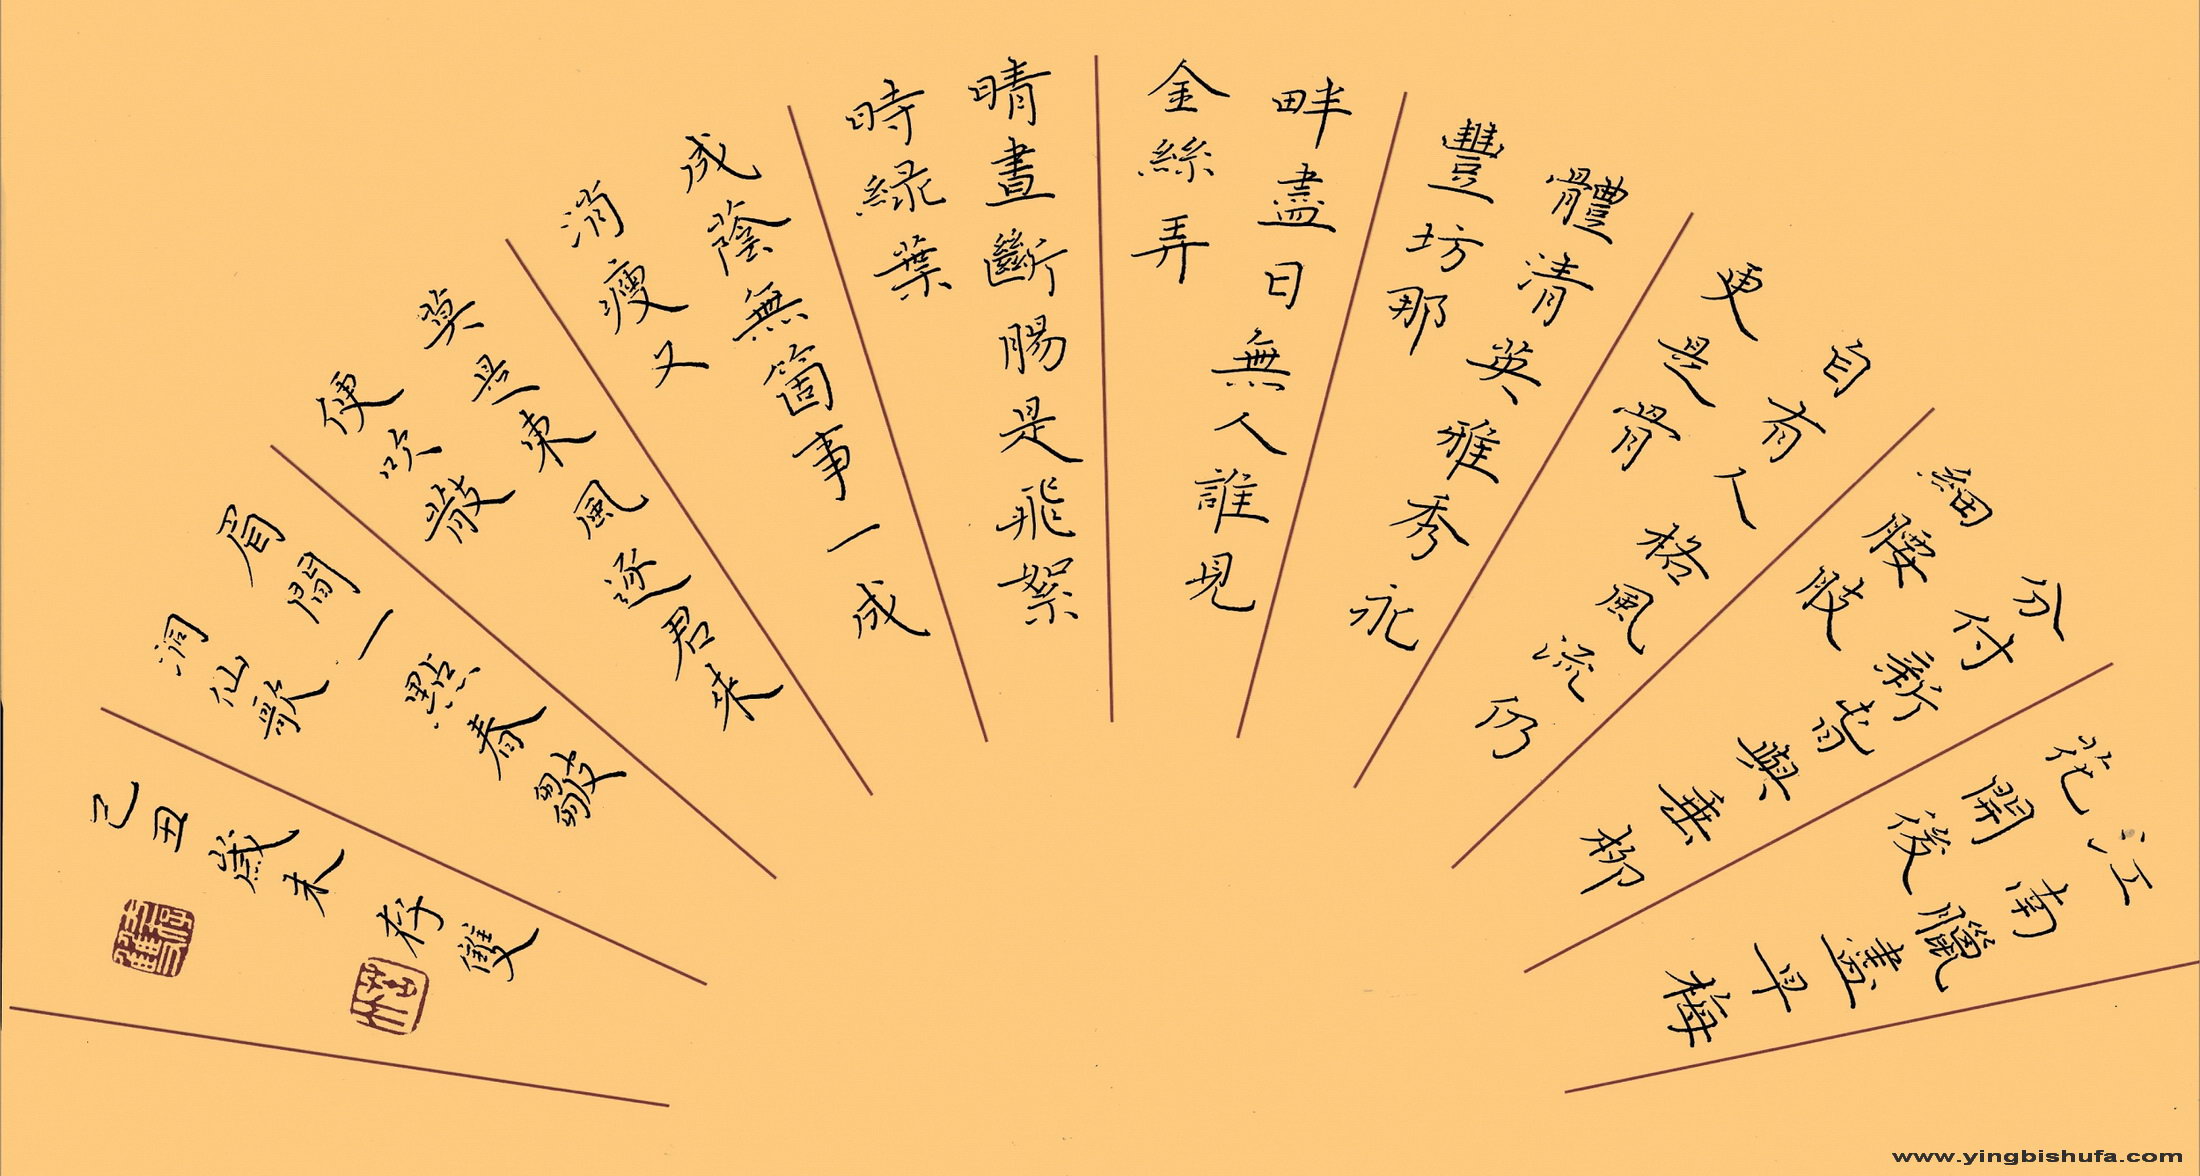 江南臘盡早梅
花開後
分付新旾與垂柳
細腰肢
自有入格風流仍
更是骨
體清英雅秀永
豐坊那
畔盡日無人誰見
金絲弄
晴晝斷腸是飛絮
時綠葉
成蔭無箇事一成
消瘦又
莫是東風逐君來
便吹散
眉間一點春皺
洞仙歌
己丑歲末存雙
www.yingbishufa.com